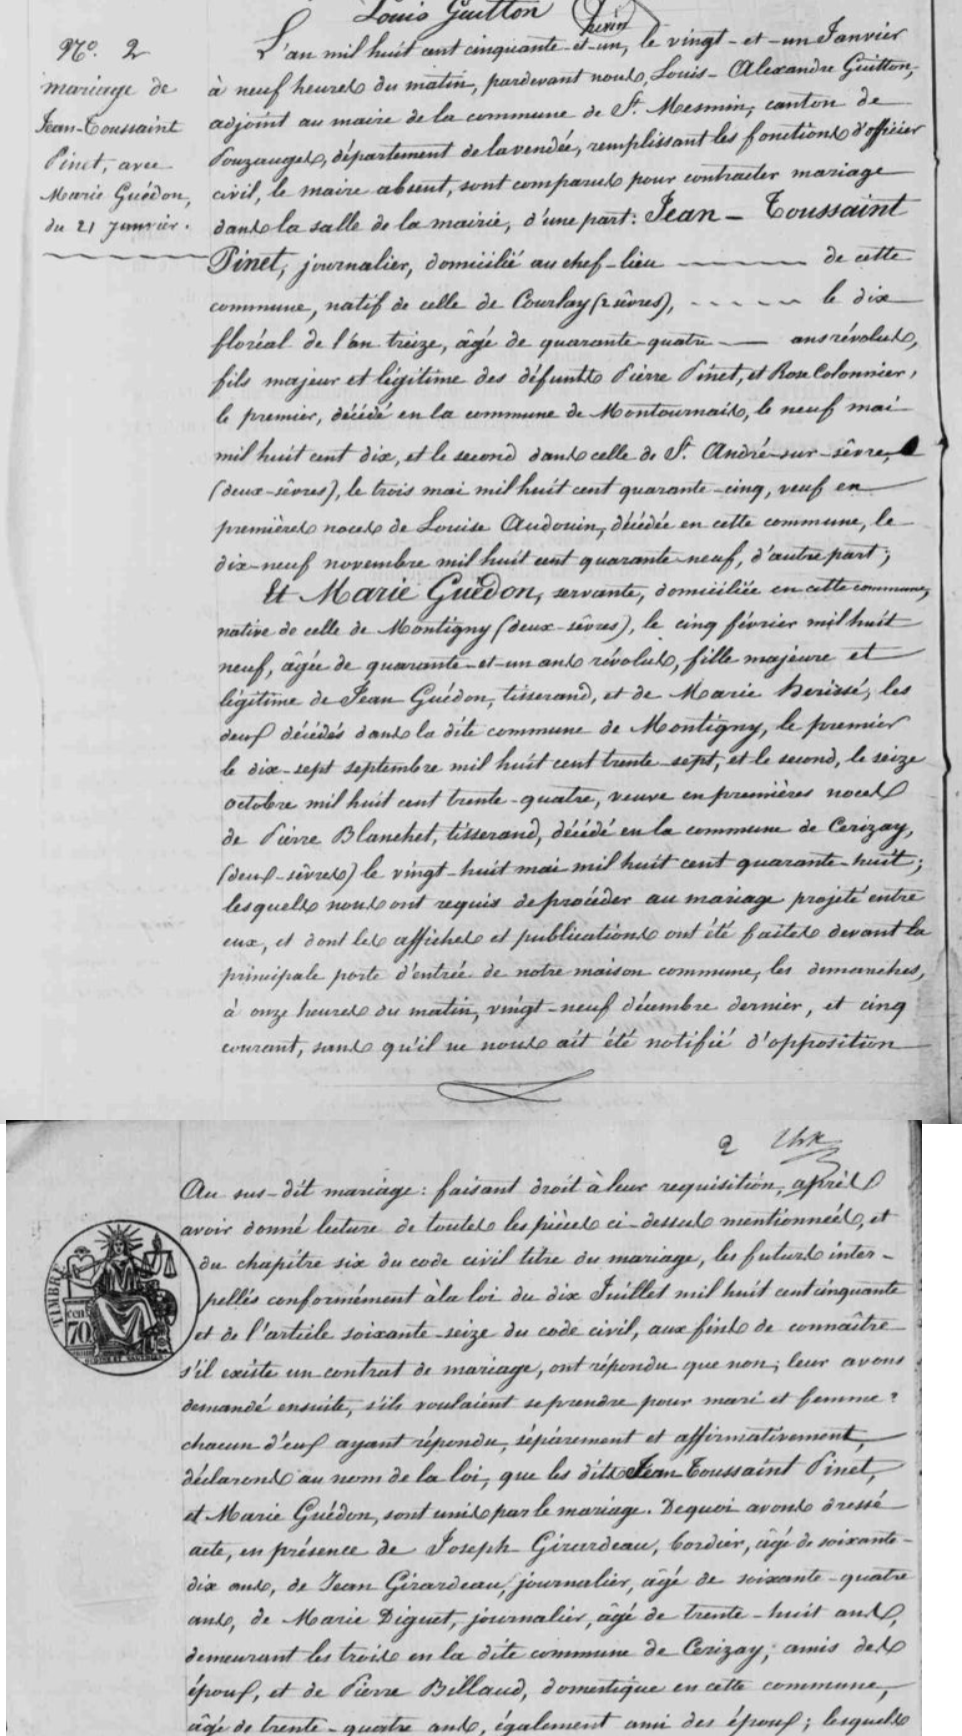 Louis Guitton
N.º 2
mariage de
Jean-Toussaint
Pinet, avec
Marie Guédon,
du 21 janvier.
L'an mil huit cent cinquante-et-un, le vingt-et-un Janvier
à neuf heures du matin, pardevant nous, Louis-Alexandre Guitton,
adjoint au maire de la commune de St. Mesmin, canton de
Pouzauges, département de la vendée, remplissant les fonctions d'officier
civil, le maire absent, sont comparus pour contracter mariage
dans la salle de la mairie, d'une part: Jean-Toussaint
Pinet, journalier, domicilié au chef-lieu de cette
commune, natif de celle de Courlay (2 sèvres), le dix
floréal de l'an treize, âgé de quarante-quatre ans révolus,
fils majeur et légitime des défunts Pierre Pinet, et Rose Colonnier,
le premier, décédé en la commune de Montournais, le neuf mai
mil huit cent dix, et le second dans celle de St. André-sur-sèvre,
(deux-sèvres), le trois mai mil huit cent quarante-cinq, veuf en
premières noces de Louise Audouin, décédée en cette commune, le
dix-neuf novembre mil huit cent quarante-neuf, d'autre part;
Et Marie Guédon, servante, domiciliée en cette commune,
native de celle de Montigny (deux-sèvres), le cinq février mil huit
neuf, âgée de quarante-et-un ans révolus, fille majeure et
légitime de Jean Guédon, tisserand, et de Marie herissé, les
deux décédés dans la dite commune de Montigny, le premier
le dix-sept septembre mil huit cent trente-sept, et le second, le seize
octobre mil huit cent trente-quatre, veuve en premières noces
de Pierre Blanchet, tisserand, décédé en la commune de Cerizay,
(deux-sèvres) le vingt-huit mai mil huit cent quarante-huit;
lesquels nous ont requis de procéder au mariage projeté entre
eux, et dont les affiches et publications ont été faites devant la
principale porte d'entrée de notre maison commune, les dimanches,
à onze heures du matin, vingt-neuf décembre dernier, et cinq
courant, sans qu'il ne nous ait été notifié d'opposition
2
Au sus-dit mariage: faisant droit à leur requisition, après
avoir donné lecture de toutes les pièces ci-dessus mentionnées, et
du chapitre six du code civil titre du mariage, les futurs inter-
pellés conformément à la loi du dix Juillet mil huit cent cinquante
et de l'article soixante-seize du code civil, aux fins de connaître
s'il existe un contrat de mariage, ont répondu que non; leur avons
demandé ensuite, s'ils voulaient se prendre pour mari et femme?
chacun d'eux ayant répondu, séparement et affirmativement,
déclarons au nom de la loi, que les dits Jean Toussaint Pinet,
et Marie Guédon, sont unis par le mariage. De quoi avons dressé
acte, en présence de Joseph Girardeau, bordier, âgé de soixante-
dix ans, de Jean Girardeau, journalier, âgé de soixante-quatre
ans, de Marie Diguet, journalier, âgé de trente-huit ans,
demeurant les trois en la dite commune de Cerizay; amis des
époux, et de Pierre Billaud, domestique en cette commune,
âgé de trente-quatre ans, également ami des époux; lesquels
TIMBRE
cen
70